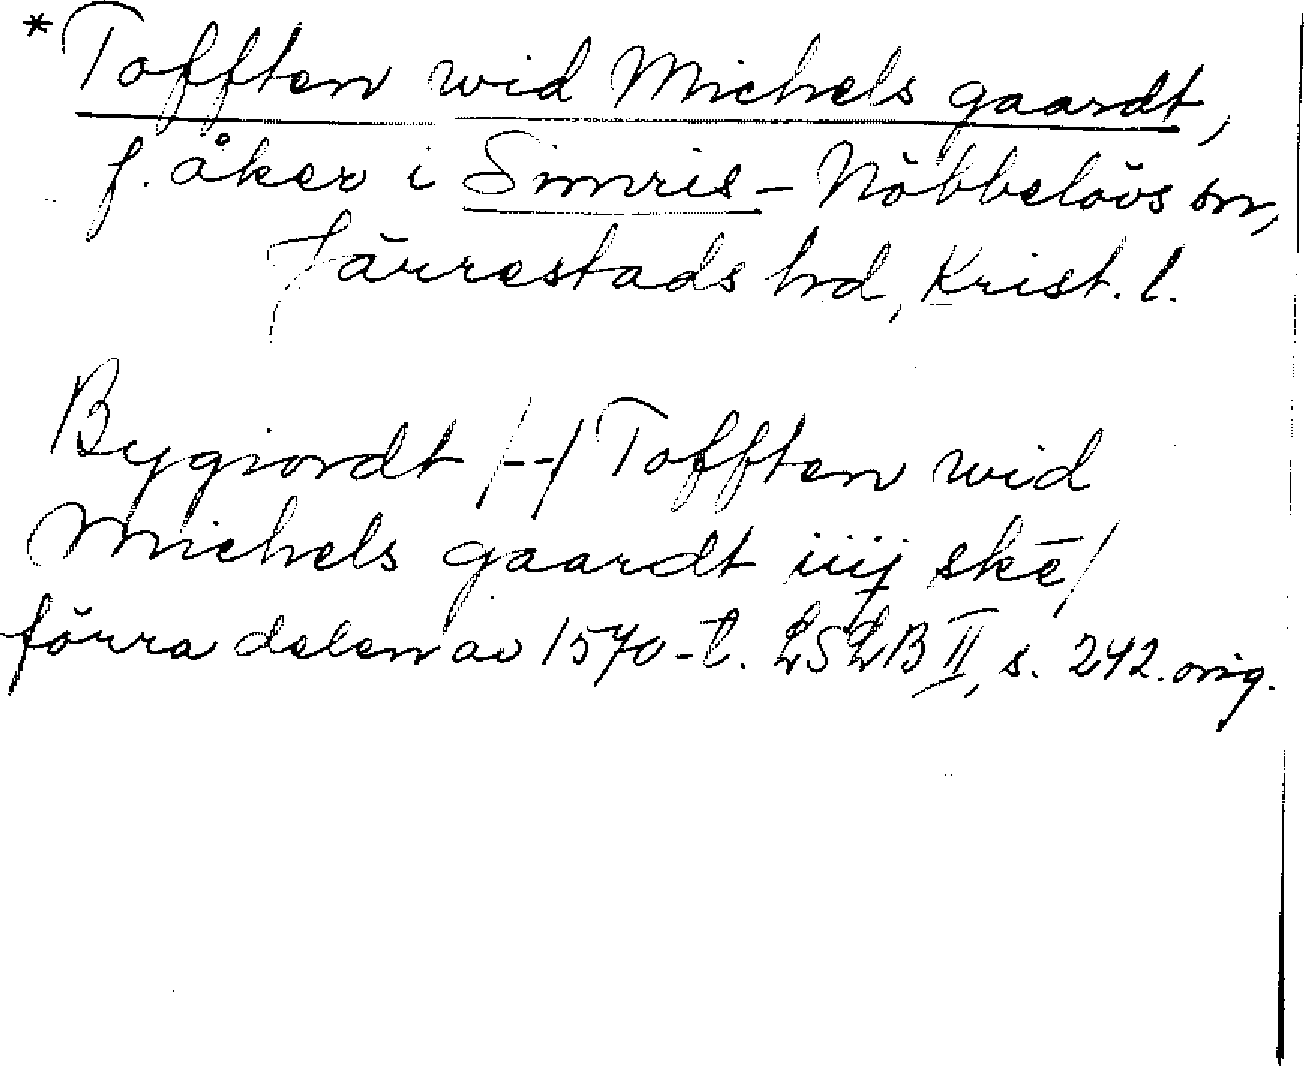 *Tofften wid Michels gaardt,
f. åker i Simris-Nöbbelövs sn,
Järrestads hd, Krist. l.
Bygiordt /--/ Tofften wid
Michels gaardt iiij skē/
förra delen av 1570-t. LSLB II, s. 242. orig.